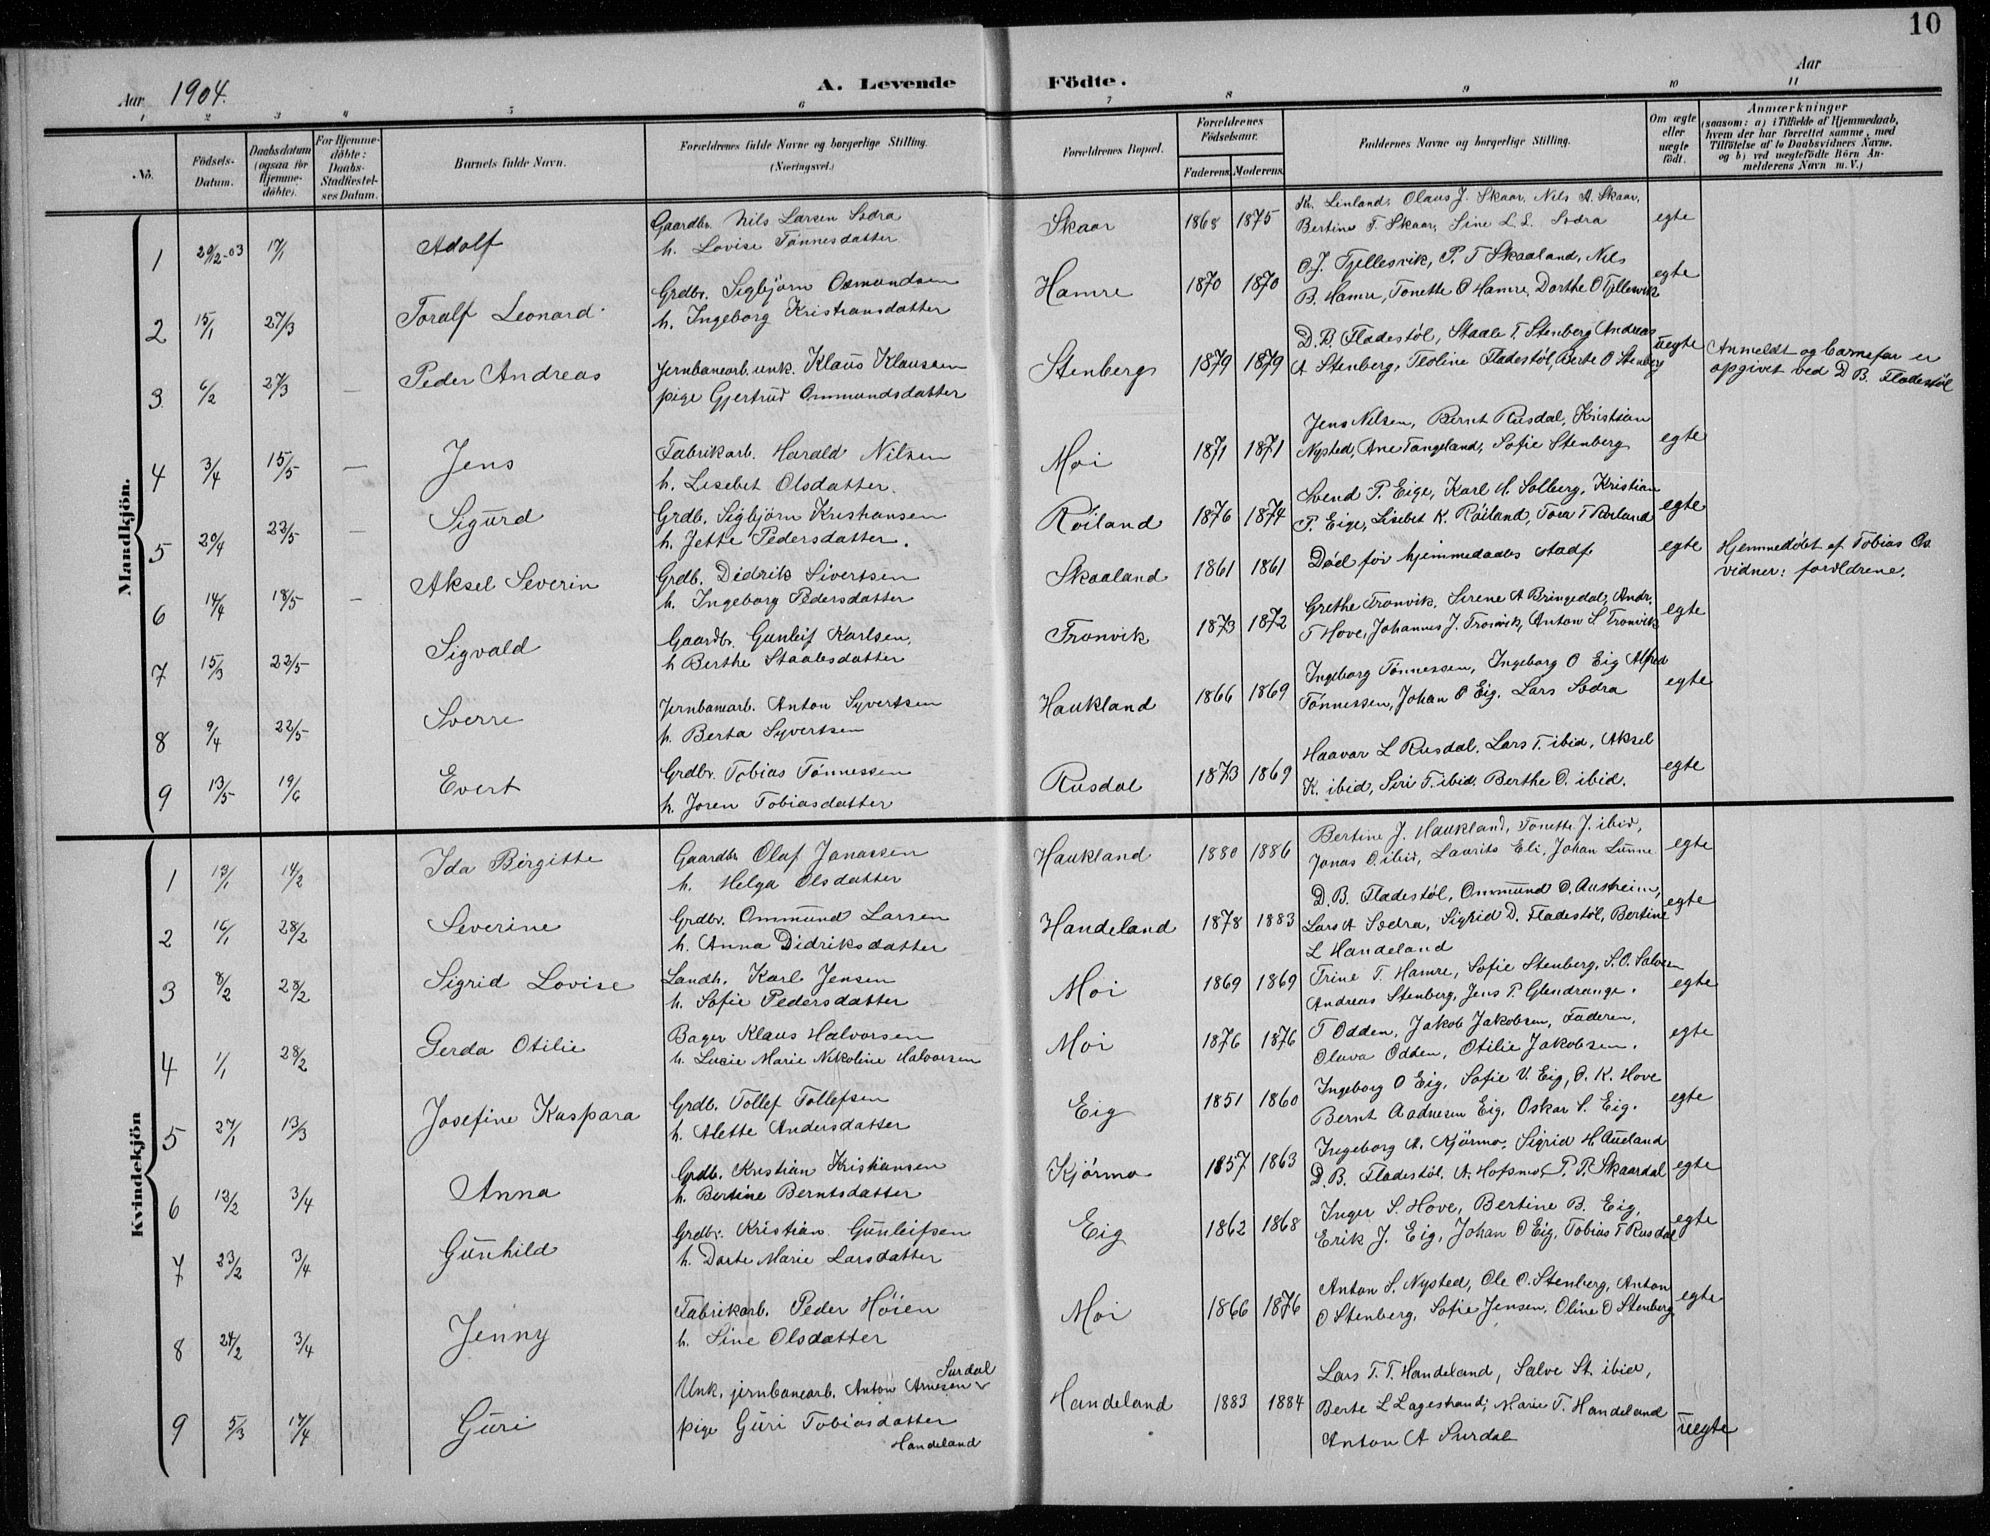 10
Aar 1904.
A. Levende Födte.
Aar
1 2 3 4 5 6 7 8 9 10 11
No.
Födsels-Datum.
Daabsdatum (ogsaa for Hjemme-döbte).
For Hjemme-döbte: Daabs-Stadfæstel-ses Datum.
Barnets fulde Navn.
Forældrenes fulde Navne og borgerlige Stilling. (Næringsvei.)
Forældrenes Bopæl.
Forældrenes Födselsaar.
Faderens. Moderens.
Faddernes Navne og borgerlige Stilling.
Om ægte eller uægte födt.
Anmærkninger (saasom: a) i Tilfælde af Hjemmedaab, hvem der har forrettet samme, med Tilföielse af to Daabsvidners Navne. og b) ved uægtefödte Börn An-melderens Navn m. V.)
Mandkjön.
1 20/12-03 17/1 – Adolf
Gaardbr. Nils Larsen Sodra
h. Lovise Tönnesdatter
Skaar 1868 1875
K. Linland, Olaus J. Skaar, Nils A. Skaar,
Bertine T. Skaar, Sine L. L. Sodra
egte
2 15/1 27/3 – Toralf Leonard
Grdbr. Sigbjörn Osmundsen
h. Ingeborg Kristiansdatter
Hamre 1870 1870
O. J. Tjellesvik, P. T Skaaland, Nils
B. Hamre, Tonette O Hamre, Dorthe O Tjellesvik
egte
3 6/2 27/3 – Peder Andreas
Jernbanearb. unk. Klaus Klaussen
pige Gjertrud Ommundsdatter
Stenberg 1879 1879
D. B. Fladestøl, Staale T Stenberg, Andreas
A Stenberg, Teoline Fladestøl, Berte O Stenberg
uegte
Anmeldt og barnefar er
opgivet ved D B. Fladestøl
4 3/4 15/5 – Jens
Fabrikarb. Harald Nilsen
h. Lisebet Olsdatter.
Moi 1871 1871
Jens Nilsen, Bernt Rusdal, Kristian
Nysted, Ane Tangeland, Sofie Stenberg
egte
5 20/4 22/5 – Sigurd
Grdb. Sigbjörn Kristiansen
h. Jette Pedersdatter.
Röiland 1876 1874
Svend P. Eige, Karl M. Solberg, Kristian
P. Eige, Lisebet K. Röiland, Tora T Röiland
egte
6 14/4 18/5 – Aksel Severin
Grdb. Didrik Sivertsen
h. Ingeborg Pedersdatter
Skaaland 1861 1861
Død før hjemmedaabs stadf.
egte
Hjemmedøbt af Tobias Os.
vidner: forældrene.
7 15/3 22/5 Sigvald
Gaardb. Gunleif Karlsen,
h Berthe Staalesdatter
Tronvik 1873 1872
Grethe Tronvik, Serene A Bringedal, Andr.
T Hove, Johannes J. Tronvik, Anton S Tronvik
egte
8 9/4 22/5 Sverre
Jernbanearb. Anton Syvertsen
h. Berta Syvertsen
Haukland 1866 1869
Ingeborg Tönnessen, Ingeborg O Eig, Alfred
Tönnessen, Johan O Eig, Lars Sodra
egte
9 13/5 19/6 Evert
Grdbr. Tobias Tönnessen
h. Joren Tobiasdatter
Rusdal 1873 1869
Haavar L Rusdal, Lars T. ibid, Aksel
K. ibid, Siri T. ibid. Berthe O. ibid.
egte
Kvindekjön
1 13/1 14/2 Ida Birgitte
Gaardbr Olaf Janassen
h. Helga Olsdatter
Haukland 1880 1886
Bertine J. Haukland, Tonette J. ibid,
Jonas O. ibid, Laurits Eli, Johan Lunne
egte
2 16/1 28/2 Severine
Grdbr. Ommund Larsen
h. Anna Didriksdatter
Handeland 1878 1883
D. B. Fladestøl, Ommund O. Austreim,
Lars A Sodra, Sigrid D. Fladestøl, Bertine
L Handeland
egte
3 8/2 28/2 Sigrid Lovise
Landh. Karl Jensen
h. Sofie Pedersdatter
Moi 1869 1869
Trine T. Hamre, Sofie Stenberg, S. O. Salvesen
Andreas Stenberg, Jens P. Glendrange.
egte
4 1/1 28/2 Gerda Otilie
Bager Klaus Halvorsen
h. Lucie Marie Nikoline Halvorsen
Moi 1876 1876
T Odden, Jakob Jakobsen, Faderen,
Olava Odden, Otilie Jakobsen.
egte
5 27/1 13/3 Josefine Kaspara
Grdb. Tollef Tollefsen
h. Alette Andersdatter
Eig 1851 1860
Ingeborg O Eig, Sofie V. Eig, O. K. Hove
Bernt Aadnesen Eig, Oskar S. Eig.
egte
6 12/2 3/4 Anna
Grdb. Kristian Kristiansen
h. Bertine Berntsdatter
Kjörmo 1857 1863
Ingeborg A. Kjörmo, Sigrid H Aueland
D. B. Fladestöl, A. Hofsmo, P. P. Skaardal
egte
7 23/2 3/4 Gunhild
Grdbr. Kristian Gunleifsen
h. Dorte Marie Larsdatter
Eig 1862 1868
Inger S. Hove, Bertine B. Eig,
Erik J. Eig, Johan O Eig, Tobias T Rusdal
egte
8 24/2 3/4 Jenny
Fabrikarb. Peder Höien
h. Sine Olsdatter
Moi 1866 1876
Anton S. Nysted, Ole O. Stenberg, Anton
O Stenberg, Sofie Jensen, Oline O Stenberg
egte
9 5/3 17/4 Guri
Unk. jernbanearb. Anton Arnesen Surdal
pige Guri Tobiasdatter
Handeland
Handeland 1883 1884
Lars T. T. Handeland, Salve St. ibid,
Berte L Lagestrand, Marie T. Handeland
Anton A Surdal
uegte